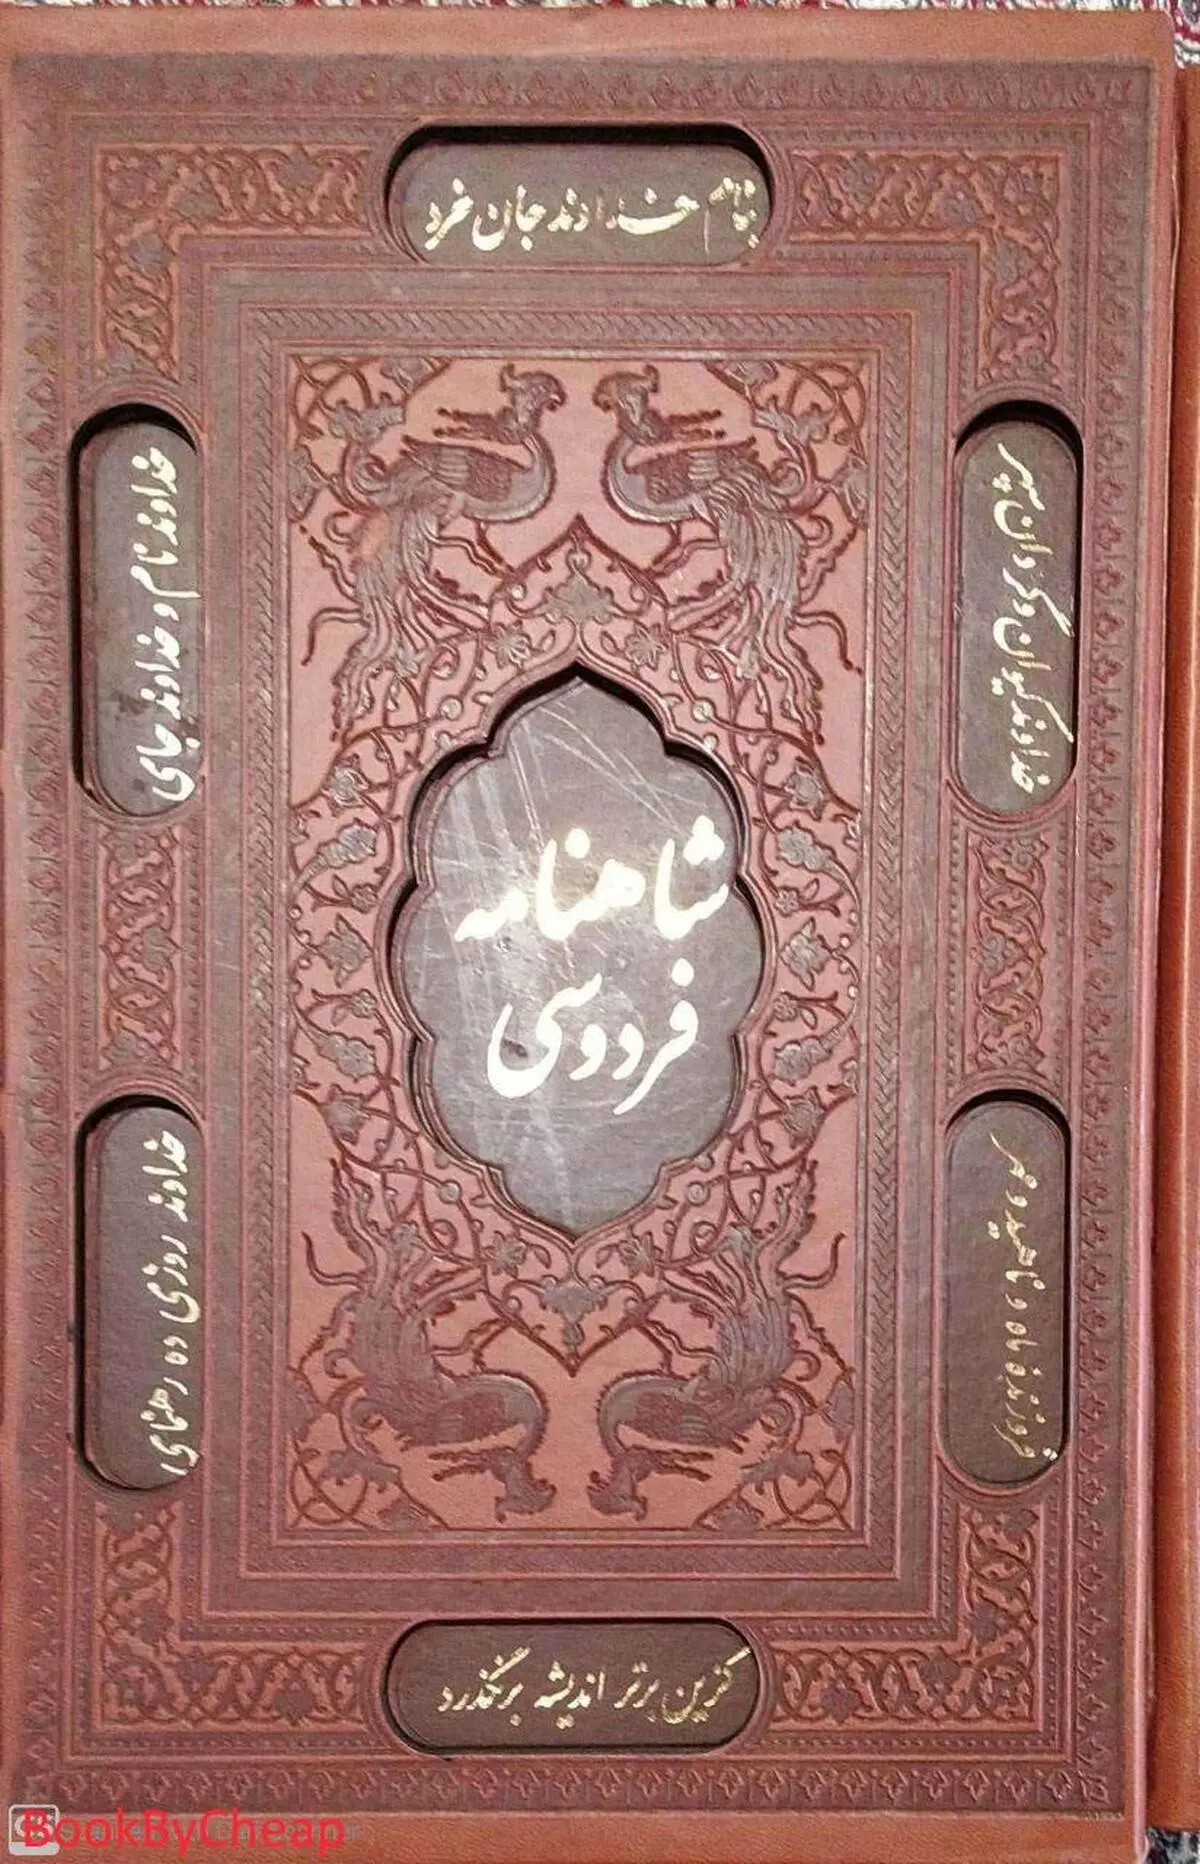 بنام خداوند جان خرد
کزین برتر اندیشه برنگذرد
خداوند نام و خداوند جای
خداوند روزی ده رهنمای
خداوند کیوان و گردان سپهر
فروزنده ماه و ناهید و مهر
شاهنامه
فردوسی
BookByCheap